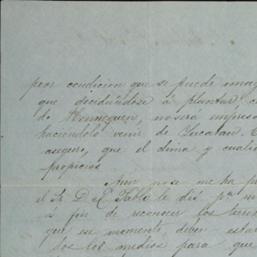 peor condicion que se puede imag
que decidiendose á plantar, c
de Henequen, no será impos
haciéndolo venir de Yucatan. E
auguro, que el clima y cuali
propicios
Aun no se me ha p
el Sr. D. E. Pablo le dis
á fin de reconocer los terre
que en momento, deben esta
los los medios para que